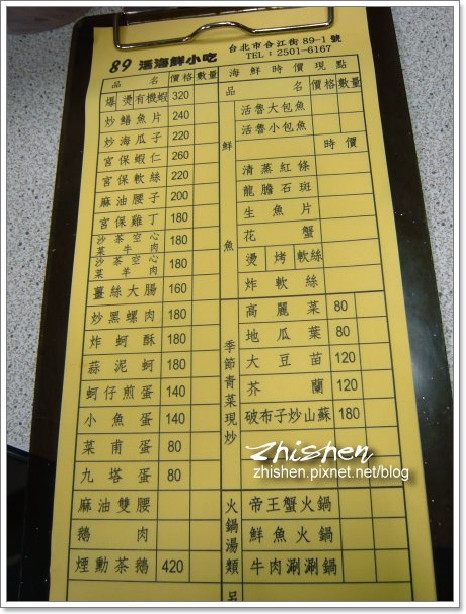 89 活海鮮小吃
台北市合江街89-1號
TEL:2501-6167
品 名 價格 數量
爆燙有機蝦 320
炒鱔魚片 240
炒海瓜子 220
宮保蝦仁 260
宮保軟絲 220
麻油腰子 200
宮保雞丁 180
沙茶空心菜牛肉 180
沙茶空心菜羊肉 180
薑絲大腸 160
炒黑螺肉 180
炸蚵酥 180
蒜泥蚵 180
蚵仔煎蛋 140
小魚蛋 140
菜甫蛋 80
九塔蛋 80
麻油雙腰
鵝肉
煙勳茶鵝 420
海鮮時價現點
品 名 價格 數量
鮮魚
活魯大包魚
活魯小包魚
時價
清蒸紅條
龍膽石斑
生魚片
花蟹
燙 烤 軟絲
炸軟絲
季節青菜現炒
高麗菜 80
地瓜葉 80
大豆苗 120
芥蘭 120
破布子炒山蘇 180
火鍋湯類
帝王蟹火鍋
鮮魚火鍋
牛肉涮涮鍋
Zhishen
zhishen.pixnet.net/blog